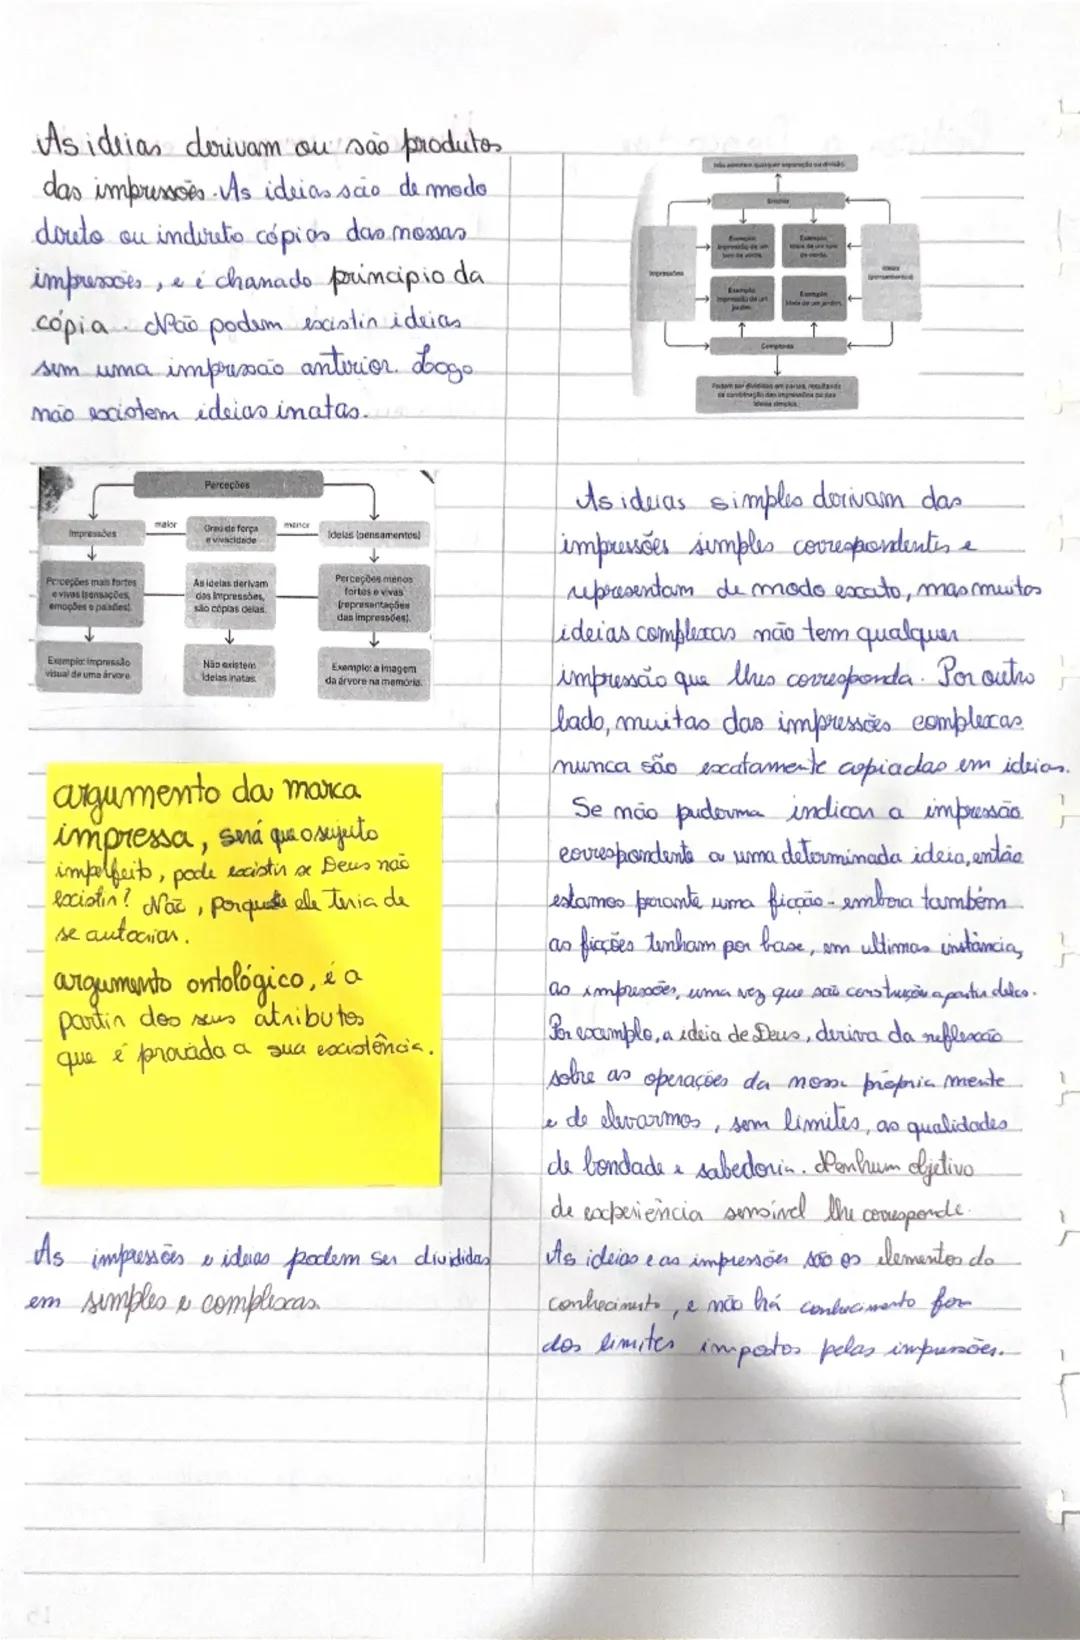 As ideias derivam ou são produtos
das impressões. As ideias são de modo
direto ou indireto cópias das nossas
impressões, e é chamado princípio da
cópia. Não podem existir ideias
sem uma impressão anterior. Logo
não existem ideias inatas.
Perceções
Impressões
maior
Grau de força
e vivacidade
menor
Ideias (pensamentos)
Perceções mais fortes
e vivas (sensações,
emoções e paixões).
As ideias derivam
das impressões,
são cópias delas.
Perceções menos
fortes e vivas
(representações
das impressões).
Exemplo: impressão
visual de uma árvore.
Não existem
ideias inatas.
Exemplo: a imagem
da árvore na memória.
argumento da marca
impressa, será que o sujeito
imperfeito, pode existir se Deus não
existir? Não, porque ele teria de
se autocriar.
argumento ontológico, é a
partir dos seus atributos
que é provada a sua existência.
As impressões e ideias podem ser divididas
em simples e complexas.
Não admitem qualquer separação ou divisão.
Simples
Exemplo:
impressão de um
tom de verde.
Exemplo:
ideia de um tom
de verde.
Impressões
Ideias
(pensamentos)
Exemplo:
impressão de um
jardim.
Exemplo:
ideia de um jardim.
Complexas
Podem ser divididas em partes, resultando
da combinação das impressões ou das
ideias simples.
As ideias simples derivam das
impressões simples correspondentes e
representam de modo exato, mas muitas
ideias complexas não tem qualquer
impressão que lhes corresponda. Por outro
lado, muitas das impressões complexas
nunca são exatamente copiadas em ideias.
Se não puderma indicar a impressão
correspondente a uma determinada ideia, então
estamos perante uma ficção - embora também
as ficções tenham por base, em ultimas instância,
as impressões, uma vez que são construção a partir delas.
Por exemplo, a ideia de Deus, deriva da reflexão
sobre as operações da nossa própria mente
e de elevarmos, sem limites, as qualidades
de bondade e sabedoria. Nenhum objetivo
de experiência sensível lhe corresponde.
As ideias e as impressões são os elementos do
conhecimento, e não há conhecimento for
dos limites impostos pelas impressões.